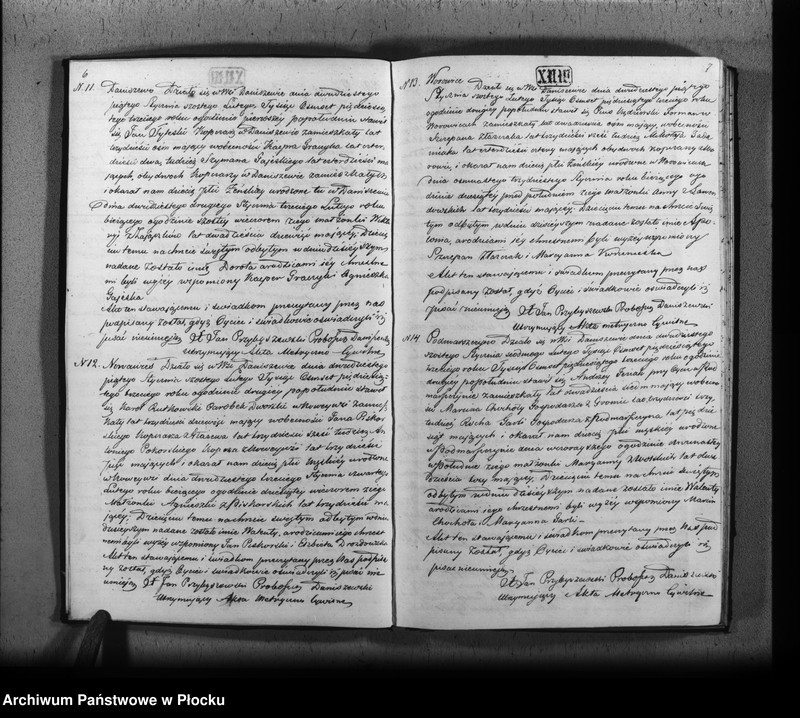 6
N. 11. Daniszewo Działo się w Wsi Daniszewie dnia dwudziestego
piątego Stycznia szóstego Lutego Tysiąc Ośmset pięćdziesią
tego trzeciego roku o godzinie pierwszej popołudniu stawił
się Jan Kopiarz w Daniszewie zamieszkały lat
trzydzieści ośm mający w obecności Kacpra lat czter
dzieści dwa, tudzież Szymana Gajeskiego lat czterdzieści ma
jących, obydwóch Kopiarzy w Daniszewie zamieszkałych
i okazał nam dziecię płci Żeńskiej urodzone tu w Daniszewie
dnia dwudziestego drugiego Stycznia trzeciego Lutego roku
bieżącego o godzinie szóstej wieczorem z jego małżonki
lat dwadzieścia dziewięć mającej, Dziecię
ciu temu na chrzcie świętym odbytym w dniu dzisiejszym
nadane zostało imię Dorota a rodzicami jej chrzestne
mi byli wyżej wspomniony Kacper i Agnieszka
Gajeska
Akt ten stawającemu i świadkom przeczytany przez nas
podpisany został, gdyż Ojciec i świadkowie oświadczyli iż
pisać nieumieją. Xt. Jan Przybyszewski Proboszcz Daniszewski
Utrzymujący Akta Metryczno-Cywilne
N. 12. Nowawieś Działo się w Wsi Daniszewie dnia dwudziestego
piątego Stycznia szóstego Lutego Tysiąc Ośmset pięćdzieią
tego trzeciego roku o godzinie drugiej popołudniu stawił
się Karol Rutkowski Parobek Dworski w Nowejwsi zamiesz
kały lat trzydzieści dwa mający w obecności Jana
lat trzydzieści sześć tudzież An
toniego lat trzydzieści
pięć mających i okazał nam dziecię płci męzkiej urodzone
w Nowejwsi dnia dwudziestego trzeciego Stycznia czwartego
Lutego roku bieżącego o godzinie dziesiątej wieczorem z jego
Małżonki Agnieszki z lat trzydzieści ma
jącej, Dziecięciu temu na chrzcie świętym odbytym w dniu
dzisiejszym nadane zostało imię Walenty, a rodzicami jego chrzest
nemi byli wyżej wspomniony Jan i Elżbieta Drozdowska
Akt ten stawającemu i świadkom przeczytany przez Nas podpisa
ny został, gdyż Ojciec i świadkowie oświadczyli iż pisać nie
umieją. Xt. Jan Przybyszewski Proboszcz Daniszewski
Utrzymujący Akta Metryczno Cywilne
7
N. 13. Worowice Działo się w Wsi Daniszewie dnia dwudziestego piątego
Stycznia szóstego Lutego Tysiąc Ośmset pięćdziesiątego trzeciego roku
o godzinie drugiej popołudniu stawił się Forman w
Worowicach zamieszkały lat dwadzieścia ośm mający, w obecności
Szczepana lat trzydzieści sześć tudzież
lat czterdzieści cztery mających obydwóch w Woro
wicach, i okazał nam dziecię płci Żeńskiej urodzone w Worowicach
dnia ósmnastego trzydziestego Stycznia roku bieżącego o go
dzinie dziesiątej przed południem z jego małżonki Anny z Lewan
dowskich lat trzydzieści mającej. Dziecięciu temu na Chrzcie Świę
tym odbytym w dniu dzisiejszym nadane zostało imie Apo
lonia, a rodzicami jej chrzestnemi byli wyżej wspomniony
Szczepan i Maryanna
Akt ten stawającemu i świadkom przeczytany przez nas
podpisany został, gdyż Ojciec i świadkowie oświadczyli iż
pisać nieumieją. Xt. Jan Przybyszewski Proboszcz Daniszewski
Utrzymujący Akta metryczno Cywilne
N. 14. Działo się w Wsi Daniszewie dnia dwudziestego
szóstego Stycznia siódmego Lutego Tysiąc Ośmset pięćdziesiątego
trzeciego roku o godzinie
drugiej popołudniu stawił się Andrzej
zamieszkały lat dwadzieścia siedm mający w obecno
ści Marcina Gospodarza z lat trzydzieści trzy,
tudzież Gospodarza lat pięćdzie
siąt mających i okazał nam dziecię płci męzkiej urodzone
dnia wczorajszego o godzinie
w południe z jego małżonki Maryanny lat dwa
dzieścia trzy mającej, Dziecięciu temu na chrzcie świętym
odbytym w dniu dzisiejszym nadane zostało imie Walenty
a rodzicami jego chrzestnemi byli wyżej wspomniony Marcin
i Maryanna
Akt ten stawającemu i świadkom przeczytany przez Nas pod
pisany został, gdyż Ojciec i świadkowie oświadczyli iż
pisać nieumieją. Xt. Jan Przybyszewski Proboszcz Daniszewski
Utrzymujący Akta Metryczno Cywilne
Archiwum Państwowe w Płocku